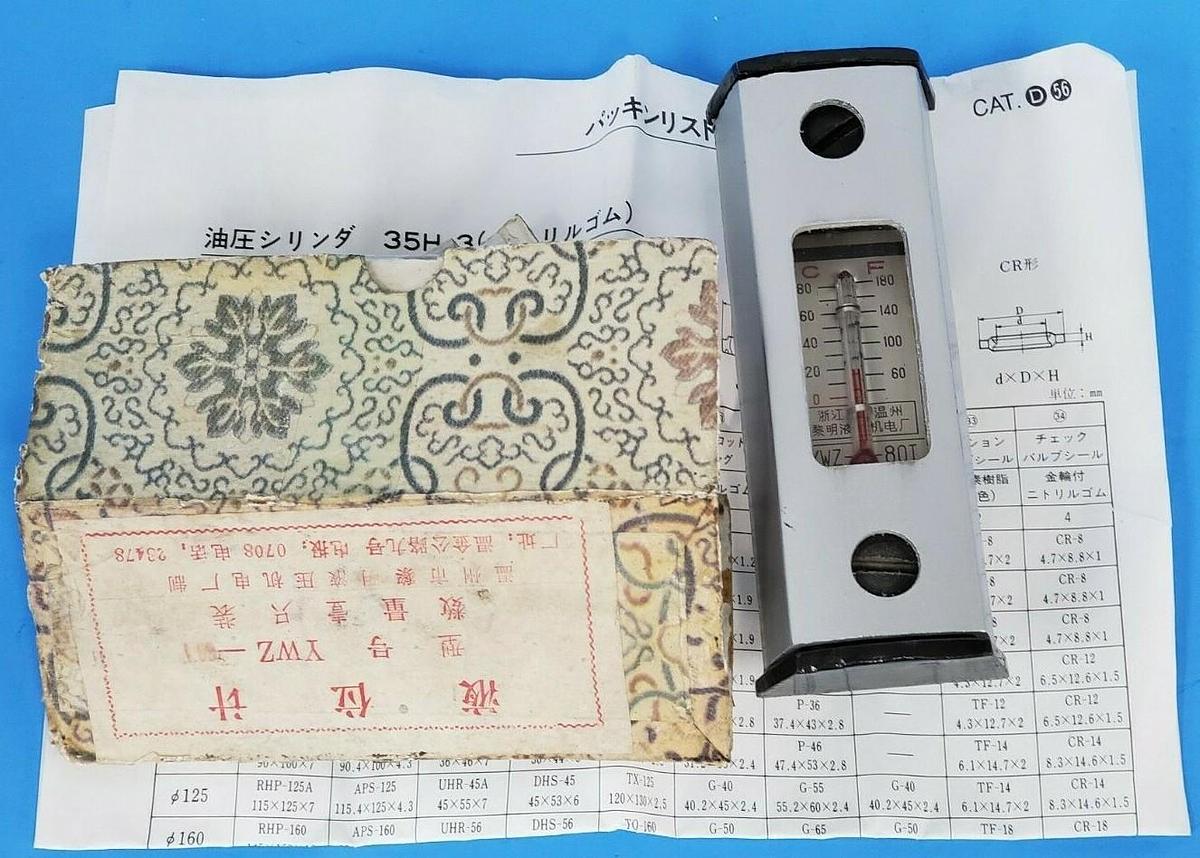 パッキンリスト
CAT. D 56
油圧シリンダ 35H-3(
リルゴム)
CR形
D
d
H
d×D×H
単位:mm
C F
80 180
60 140
40 100
20 60
0
浙江 温州
黎明液 机电厂
YWZ-80T
液位计
型号 YWZ—
数量 壹只装
温州市黎明液压机电厂制
厂址:温金公路九号 电报:0708 电话:23478
34
チェック
バルブシール
金輪付
ニトリルゴム
4
CR-8
4.7×8.8×1
CR-8
4.7×8.8×1
CR-8
4.7×8.8×1
CR-12
6.5×12.6×1.5
P-36 — TF-12 CR-12
37.4×43×2.8 4.3×12.7×2 6.5×12.6×1.5
P-46 — TF-14 CR-14
47.4×53×2.8 6.1×14.7×2 8.3×14.6×1.5
φ125 RHP-125A APS-125 UHR-45A DHS-45 TX-125 G-40 G-55 G-40 TF-14 CR-14
115×125×7 115.4×125×4.3 45×55×7 45×53×6 120×130×2.5 40.2×45×2.4 55.2×60×2.4 40.2×45×2.4 6.1×14.7×2 8.3×14.6×1.5
φ160 RHP-160 APS-160 UHR-56 DHS-56 TO-160 G-50 G-65 G-50 TF-18 CR-18